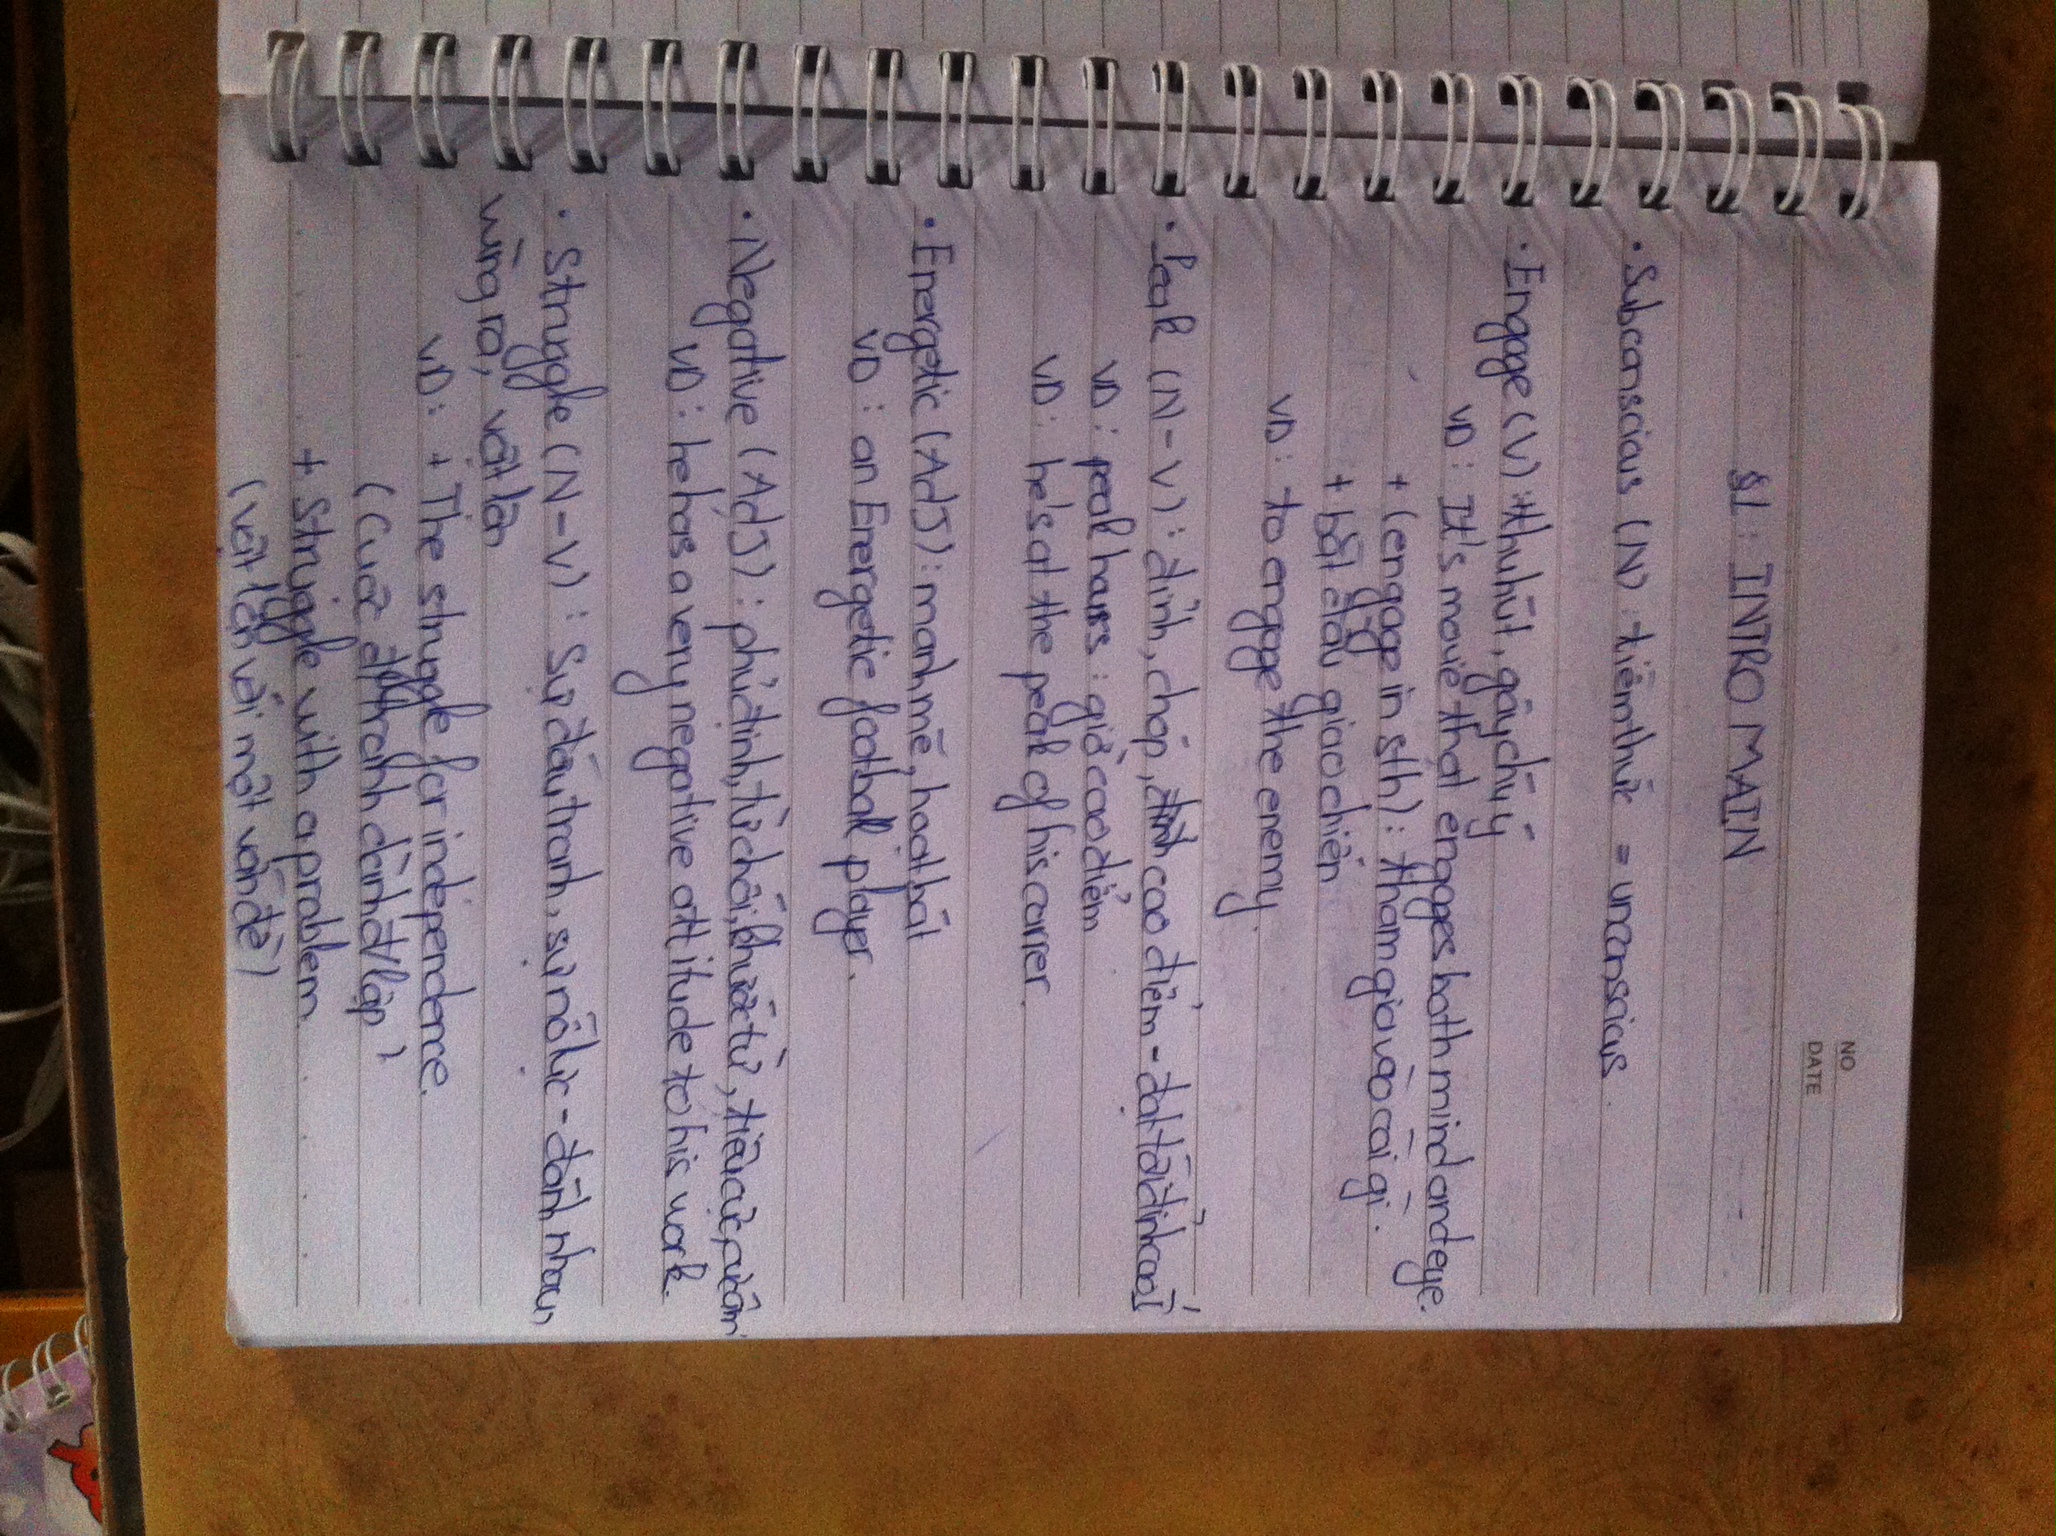 NO
DATE
§1: INTRO MAIN
• Subconscious (N): tiềm thức = unconscious.
• Engage (V): thu hút, gây chú ý
VD: It's movie that engages both mind and eye.
+ (engage in sth): tham gia vào cái gì.
+ bắt đầu giao chiến
VD: to engage the enemy.
• Peak (N-V): đỉnh, chóp, cao điểm - đạt tới đỉnh cao
VD: peak hours: giờ cao điểm
VD: he's at the peak of his carrer.
• Energetic (AdJ): mạnh mẽ, hoạt bát
VD: an Energetic football player.
• Negative (AdJ): phủ định, từ chối, khước từ, tiêu cực, cực âm
VD: he has a very negative attitude to his work.
• Struggle (N-V): Sự đấu tranh, sự nỗ lực - đánh nhau,
vùng ra, vật lộn
VD: + The struggle for independence.
(Cuộc đ/tranh dành đ/lập)
+ Struggle with a problem.
(vật lộn với một vấn đề)